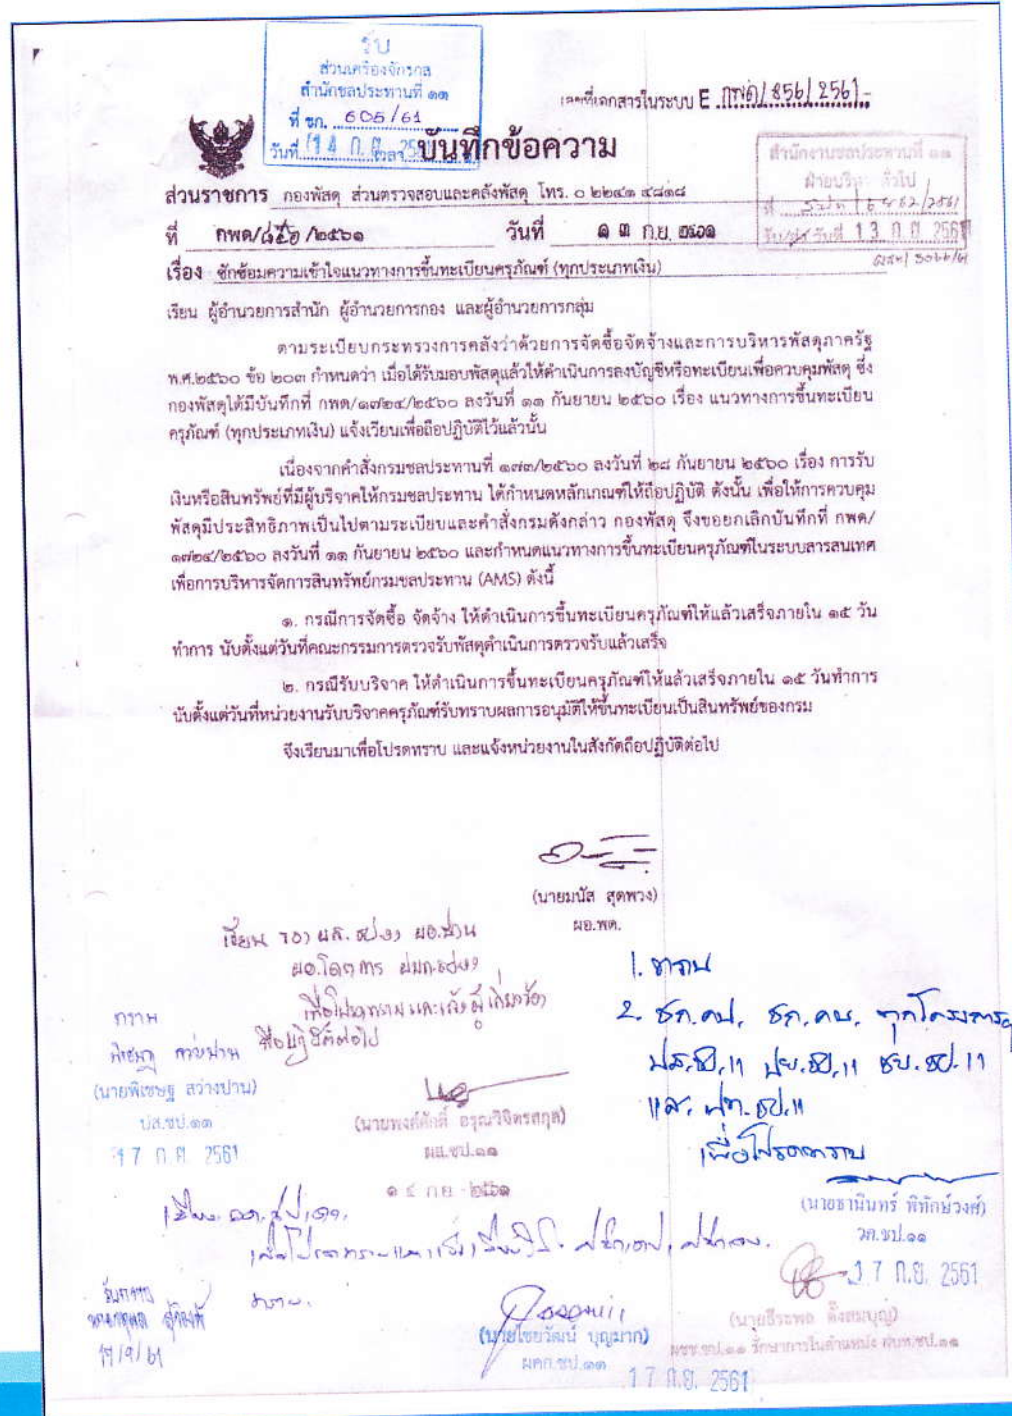 รับ
ส่วนเครื่องจักรกล
สำนักชลประทานที่ ๑๑
ที่ ชก. 605/61
วันที่ 14 ก.ย. 256 เวลา
เลขที่เอกสารในระบบ E กพด/856/2561
บันทึกข้อความ
สำนักงานชลประทานที่ ๑๑
ฝ่ายบริหารทั่วไป
ที่ 6462/2561
รับ/ส่ง วันที่ 13 ก.ย. 2561
ส่วนราชการ กองพัสดุ ส่วนตรวจสอบและคลังพัสดุ โทร. ๐ ๒๒๔๑ ๔๘๑๘
ที่ กพด/๘๕๖/๒๕๖๑ วันที่ ๑๓ ก.ย. ๒๕๖๑
เรื่อง ซักซ้อมความเข้าใจแนวทางการขึ้นทะเบียนครุภัณฑ์ (ทุกประเภทเงิน)
เรียน ผู้อำนวยการสำนัก ผู้อำนวยการกอง และผู้อำนวยการกลุ่ม
ตามระเบียบกระทรวงการคลังว่าด้วยการจัดซื้อจัดจ้างและการบริหารพัสดุภาครัฐ
พ.ศ.๒๕๖๐ ข้อ ๒๐๓ กำหนดว่า เมื่อได้รับมอบพัสดุแล้วให้ดำเนินการลงบัญชีหรือทะเบียนเพื่อควบคุมพัสดุ ซึ่ง
กองพัสดุได้มีบันทึกที่ กพด/๑๗๒๔/๒๕๖๐ ลงวันที่ ๑๑ กันยายน ๒๕๖๐ เรื่อง แนวทางการขึ้นทะเบียน
ครุภัณฑ์ (ทุกประเภทเงิน) แจ้งเวียนเพื่อถือปฏิบัติไว้แล้วนั้น
เนื่องจากคำสั่งกรมชลประทานที่ ๑๗๓/๒๕๖๐ ลงวันที่ ๒๘ กันยายน ๒๕๖๐ เรื่อง การรับ
เงินหรือสินทรัพย์ที่มีผู้บริจาคให้กรมชลประทาน ได้กำหนดหลักเกณฑ์ให้ถือปฏิบัติ ดังนั้น เพื่อให้การควบคุม
พัสดุมีประสิทธิภาพเป็นไปตามระเบียบและคำสั่งกรมดังกล่าว กองพัสดุ จึงขอยกเลิกบันทึกที่ กพด/
๑๗๒๔/๒๕๖๐ ลงวันที่ ๑๑ กันยายน ๒๕๖๐ และกำหนดแนวทางการขึ้นทะเบียนครุภัณฑ์ในระบบสารสนเทศ
เพื่อการบริหารจัดการสินทรัพย์กรมชลประทาน (AMS) ดังนี้
๑. กรณีการจัดซื้อ จัดจ้าง ให้ดำเนินการขึ้นทะเบียนครุภัณฑ์ให้แล้วเสร็จภายใน ๑๕ วัน
ทำการ นับตั้งแต่วันที่คณะกรรมการตรวจรับพัสดุดำเนินการตรวจรับแล้วเสร็จ
๒. กรณีรับบริจาค ให้ดำเนินการขึ้นทะเบียนครุภัณฑ์ให้แล้วเสร็จภายใน ๑๕ วันทำการ
นับตั้งแต่วันที่หน่วยงานรับบริจาคครุภัณฑ์รับทราบผลการอนุมัติให้ขึ้นทะเบียนเป็นสินทรัพย์ของกรม
จึงเรียนมาเพื่อโปรดทราบ และแจ้งหน่วยงานในสังกัดถือปฏิบัติต่อไป
(นายมนัส สุดพวง)
ผอ.พด.
เพื่อโปรดทราบและแจ้งผู้เกี่ยวข้อง
ถือปฏิบัติต่อไป
ทราบ
(นายพิเชษฐ สว่างปาน)
ปส.ชป.๑๑
17 ก.ย. 2561
(นายพงศ์ศักดิ์ อรุณวิจิตรสกุล)
ผส.ชป.๑๑
๑๔ ก.ย. ๒๕๖๑
1. ทราบ
เพื่อโปรดทราบ
(นายธานินทร์ พิทักษ์วงศ์)
วศ.ชป.๑๑
17 ก.ย. 2561
19/9/61
(นายไชยวัฒน์ บุญมาก)
ผคก.ชป.๑๑
17 ก.ย. 2561
(นายธีระพล ตั้งสมบุญ)
ผชช.ชป.๑๑ รักษาการในตำแหน่ง ผบท.ชป.๑๑